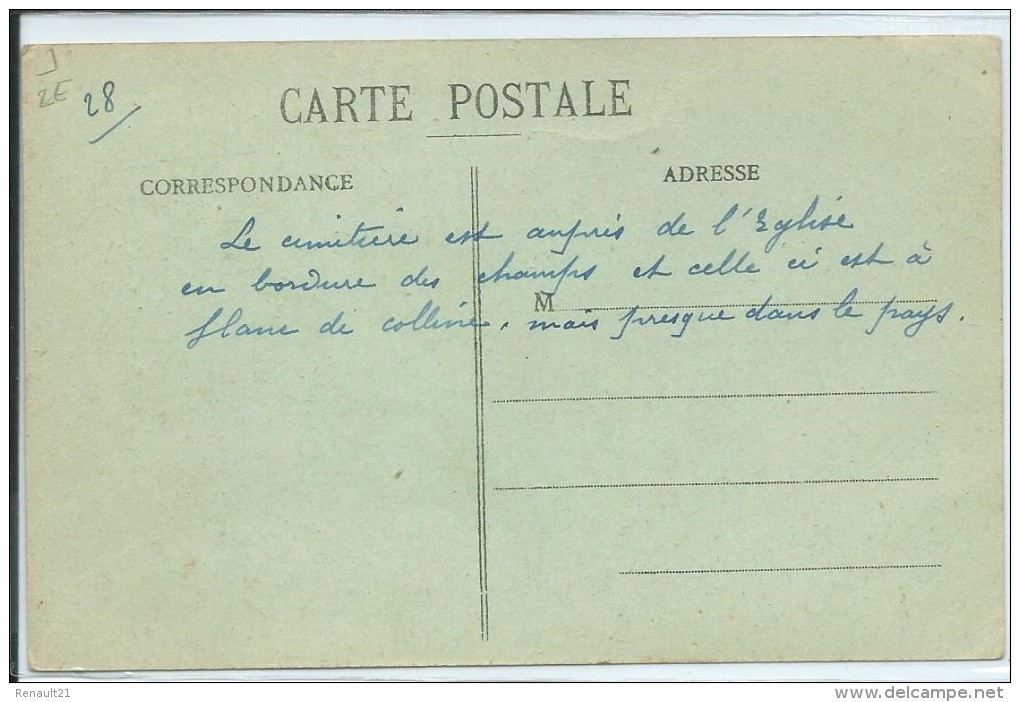 2E
28
CARTE POSTALE
CORRESPONDANCE
ADRESSE
Le cimetière est auprès de l'Eglise
en bordure des champs et celle ci est à
M
flanc de colline, mais presque dans le pays.
Renault21
www.delcampe.net